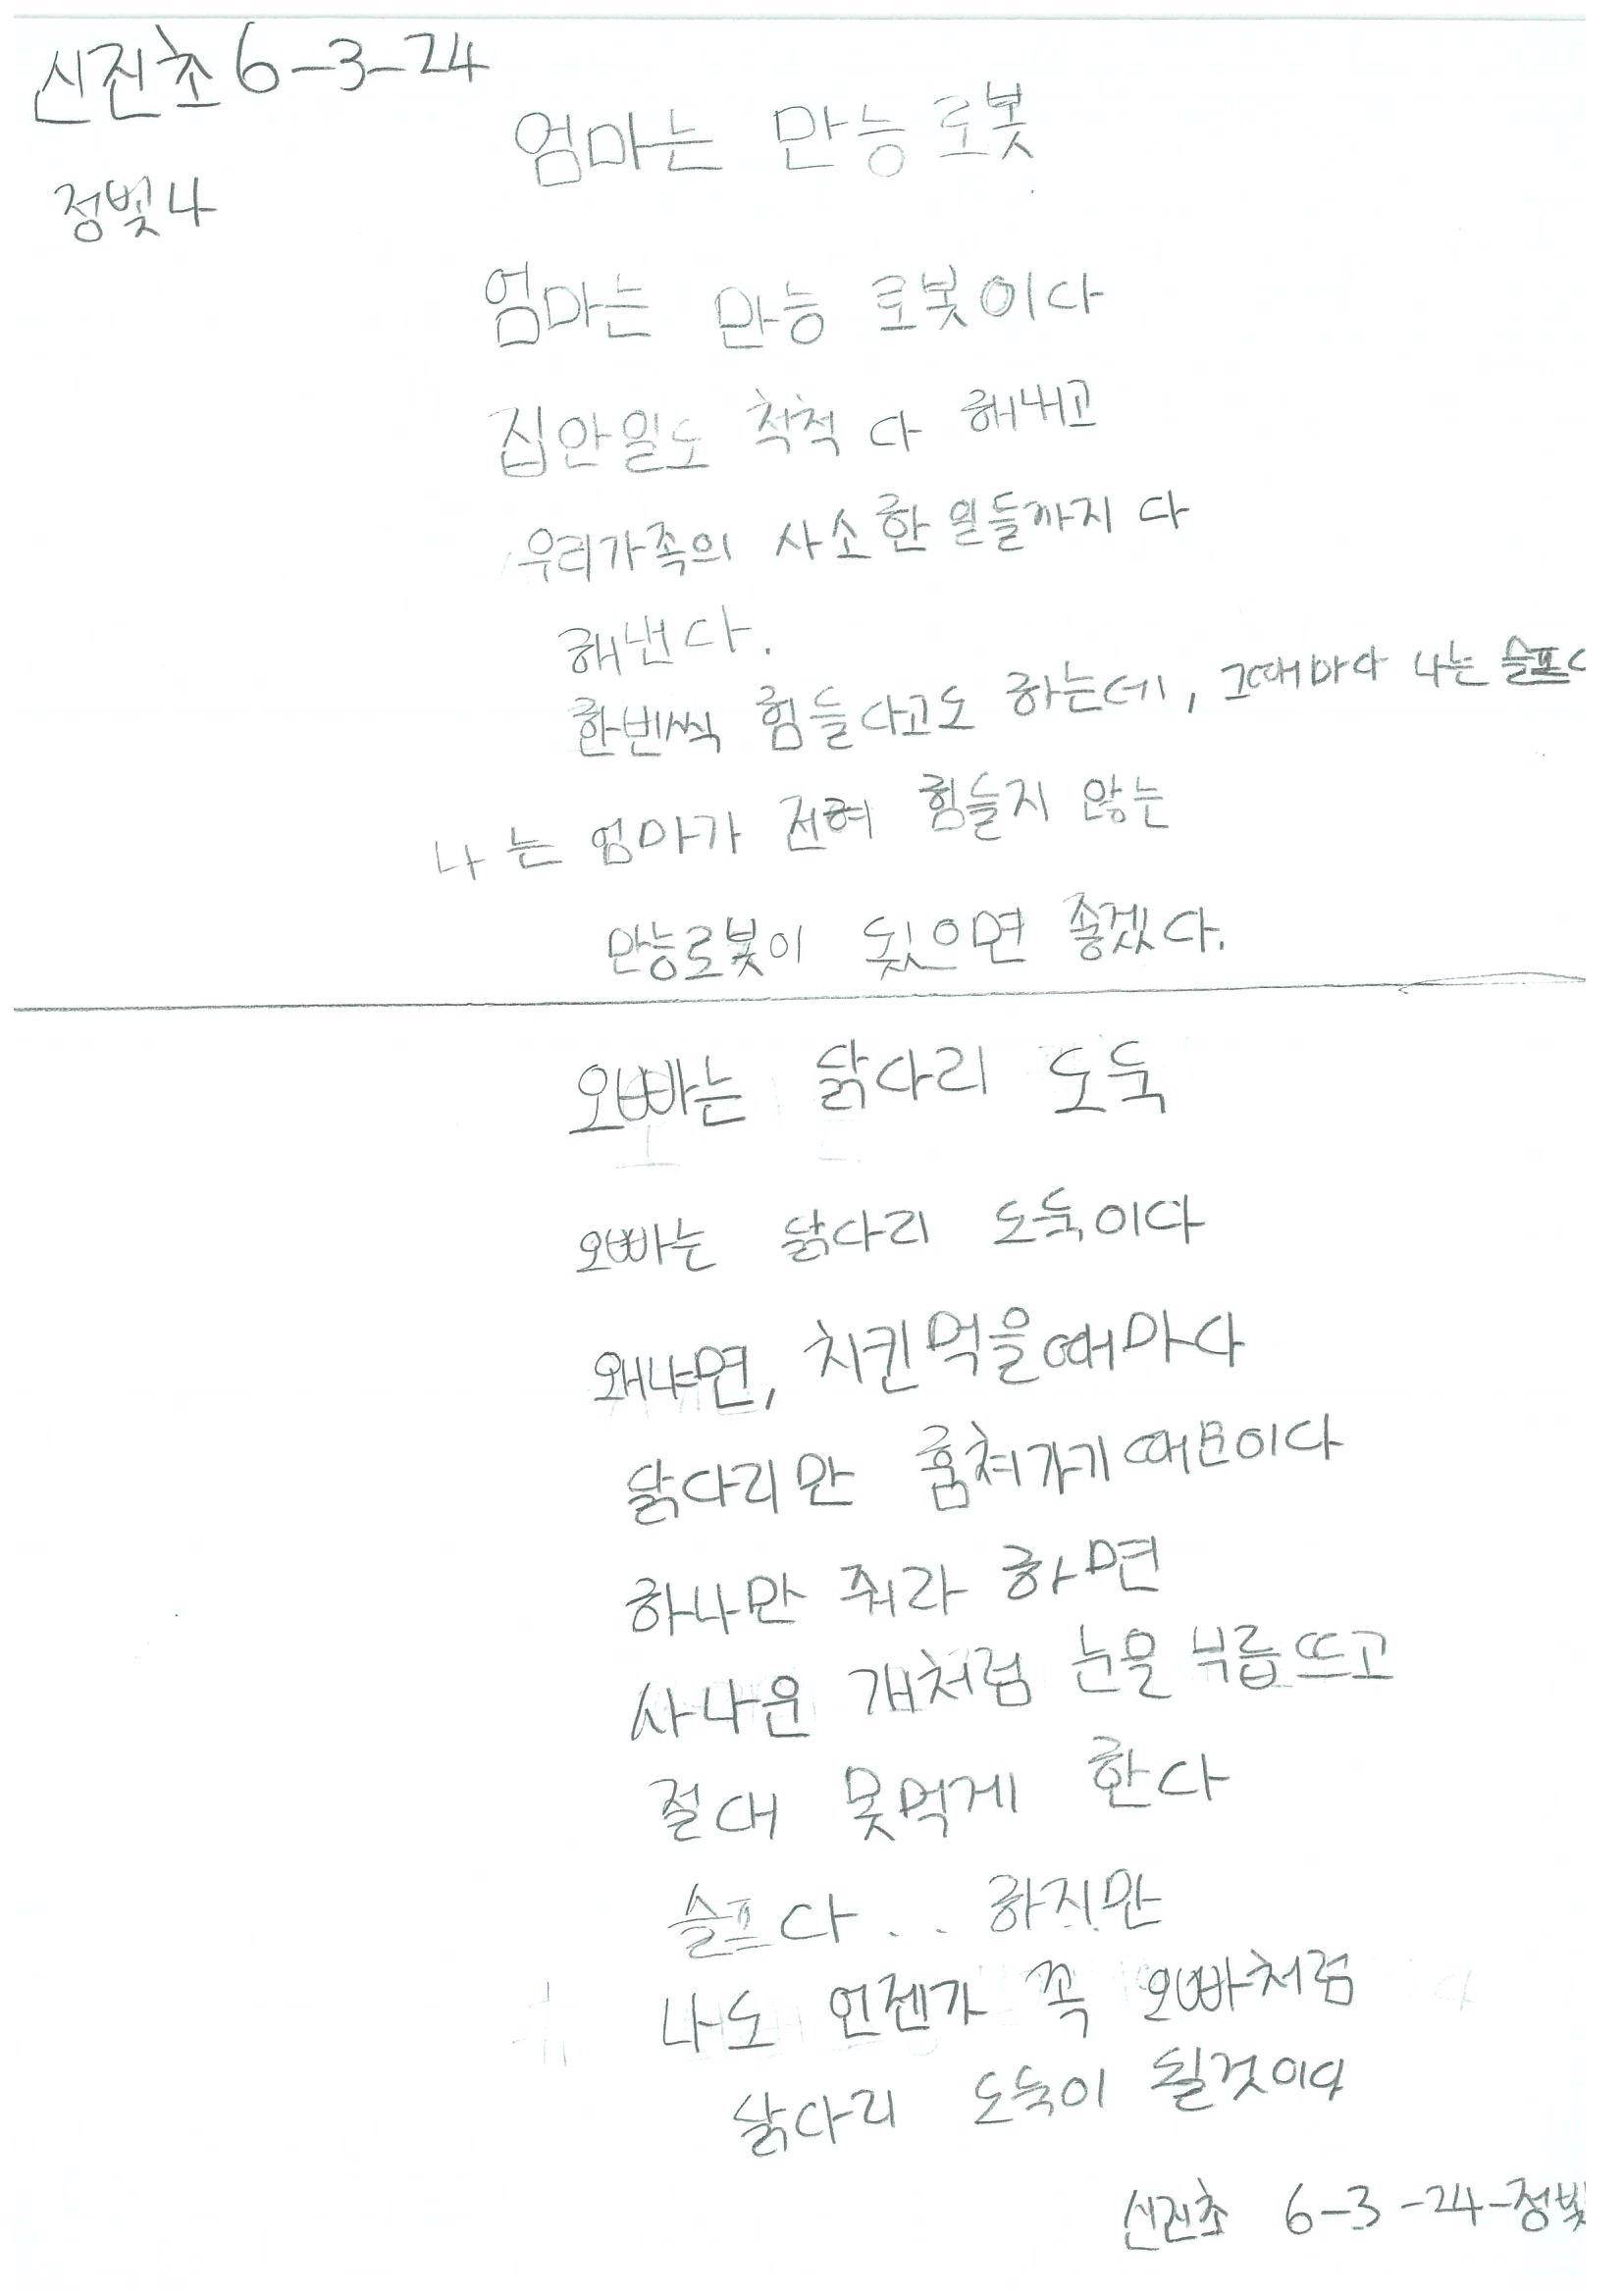 신진초 6-3-24
정빛나
엄마는 만능 로봇
엄마는 만능 로봇이다
집안일도 척척 다 해내고
우리가족의 사소한 일들까지 다
해낸다.
한번씩 힘들다고도 하는데, 그때마다 나는 슬프다
나는 엄마가 전혀 힘들지 않는
만능로봇이 됬으면 좋겠다.
오빠는 닭다리 도둑
오빠는 닭다리 도둑이다
왜냐면, 치킨먹을때마다
닭다리만 훔쳐가기때문이다
하나만 줘라 하면
사나운 개처럼 눈을 부릅뜨고
절대 못먹게 한다
슬프다... 하지만
나도 언젠가 꼭 오빠처럼
닭다리 도둑이 될것이다
신진초 6-3-24-정빛